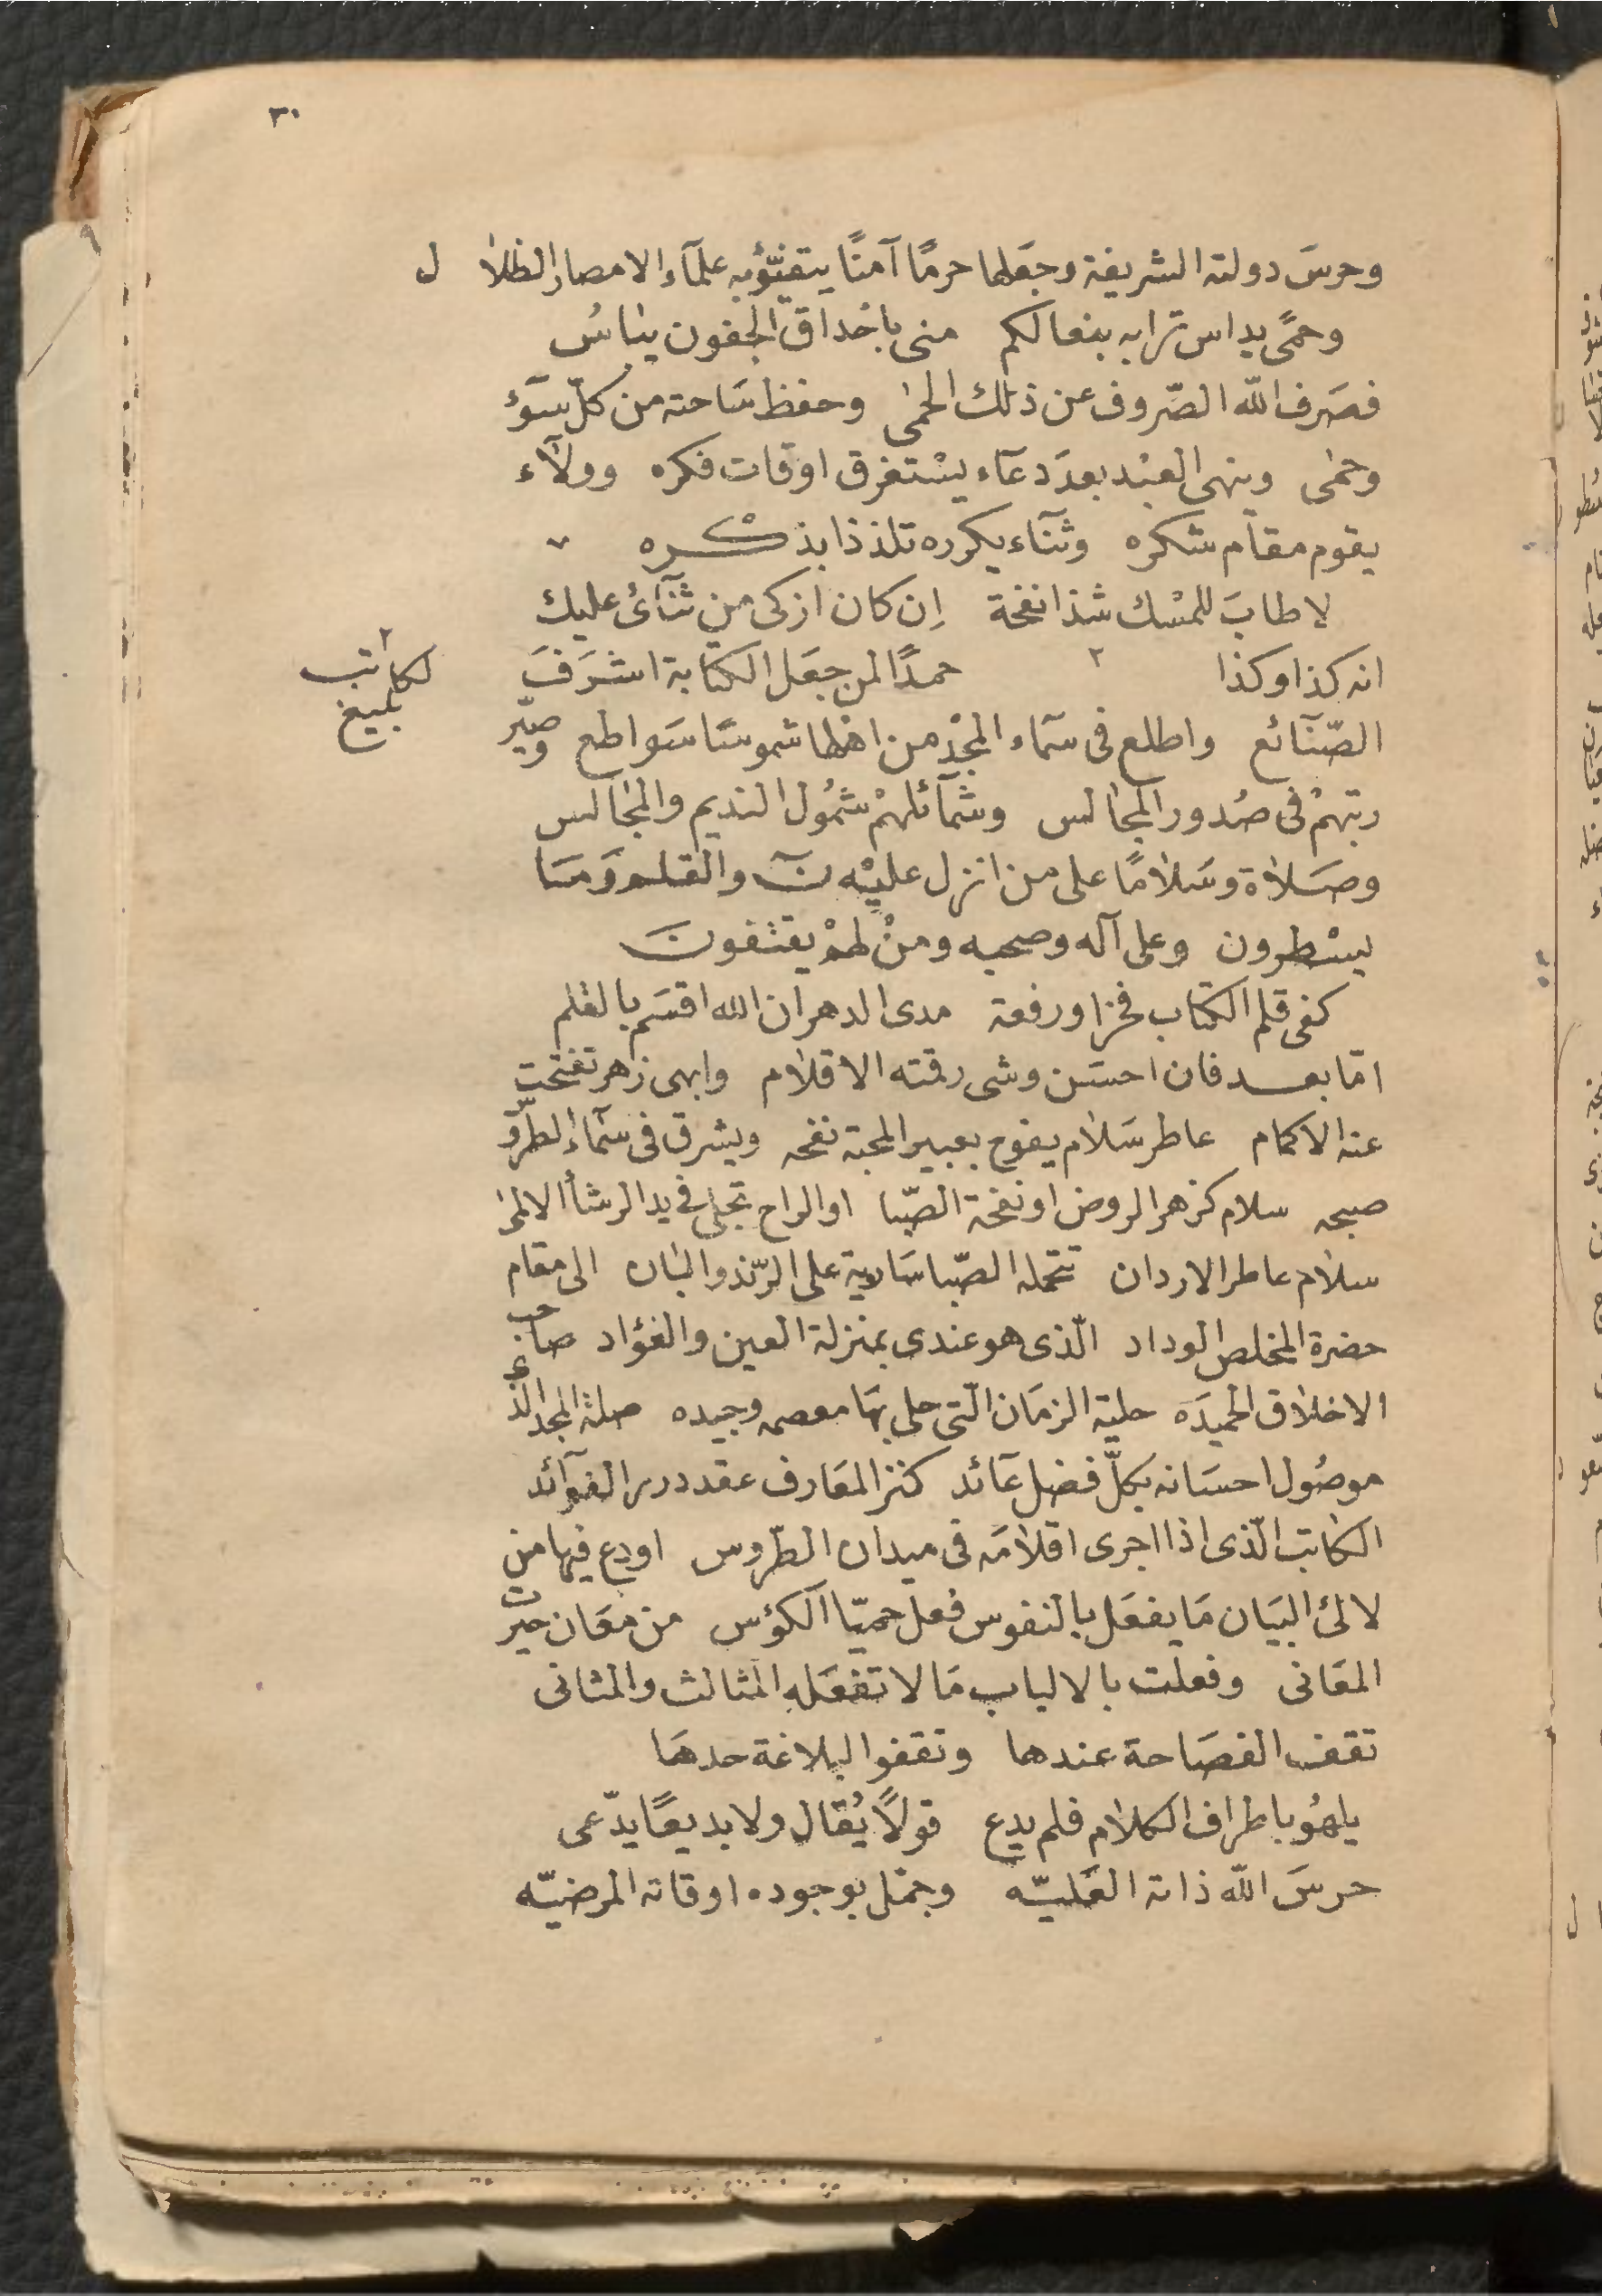 ٣٠
وحرسَ دولته الشريفة وجعَلها حرمًا آمنًا يتفيّؤ به علمآء الامصار الظلال
وحمًى يداس ترابه بنعالكم منى باحداق الجفون يباسُ
فصَرف اللّه الصّروف عن ذلك الحمٰى وحفظ سَاحته من كلّ سَوٓء
وحمٰى وينهى العبْد بعدَ دعآء يسْتغرق اوقات فكره وولآء
يقوم مقام شكره وثنآء يكرره تلذذا بذكره
لا طابَ للمسْك شذا نفحة اِن كان ازكى من ثنآئ عليك
انه كذا وكذا ٢ حمدًا لمن جعَل الكتابة اشرَفَ
٢ لكاتب بليغ
الصّنآئع واطلع فى سمآء المجْد من اهلها شموسًا سَواطع وصيّر
رتبهمْ فى صُدور المجٰالس وشمآئلهمْ شمُول النديم والمجٰالس
وصَلاٰة وسَلاٰمًا على من انزل عليْه نٓ والقلم وَمَا
يسْطرون وعلى آله وصحبه ومنْ لهمْ يقتفون
كفى قلم الكتاب فخرا ورفعة مدى الدهر ان الله اقسَم بالقلم
امّا بعد فان احسَن وشى رقمته الاقلاٰم وابهى زهر تفتحت
عنه الاكمام عاطر سَلاٰم يفوح بعبير المحبة نفحه ويشرق فى سمآء الطروس
صبحه سلام كزهر الروض او نفحة الصّبا او الراح تجلى فى يد الرشأ الالمٰى
سلاٰم عاطر الاردان تتحمله الصّبا سَارية على الرّند والبٰان الى مقام
حضرة المخلص الوداد الّذى هو عندى بمنزلة العين والفؤاد صاحب
الاخلاٰق الحميدَه حلية الزمَان الّتى حلى بهَا معصمه وجيده صلة المجد الذى
موصُول احسَانه بكلّ فضل عَآئد كنز المعَارف عقد درر الفوآئد
الكاتب الّذى اذا اجرى اقلاٰمَه فى ميدان الطّروس اودع فيها من
لالئ البيَان مَا يفعَل بالنفوس فعل حميّا الكؤس من معَان حيّرت
المعَانى وفعلت بالالباب مَا لا تفعَله المثالث والمثانى
تقف الفصَاحة عندها وتقفوا البلاغة حدهَا
يلهُو باطراف الكلاٰم فلم يدع قولاً يُقال ولا بديعًا يدّعى
حرسَ اللّه ذاته العَليّه وجمّل بوجوده اوقاته المرضيّه